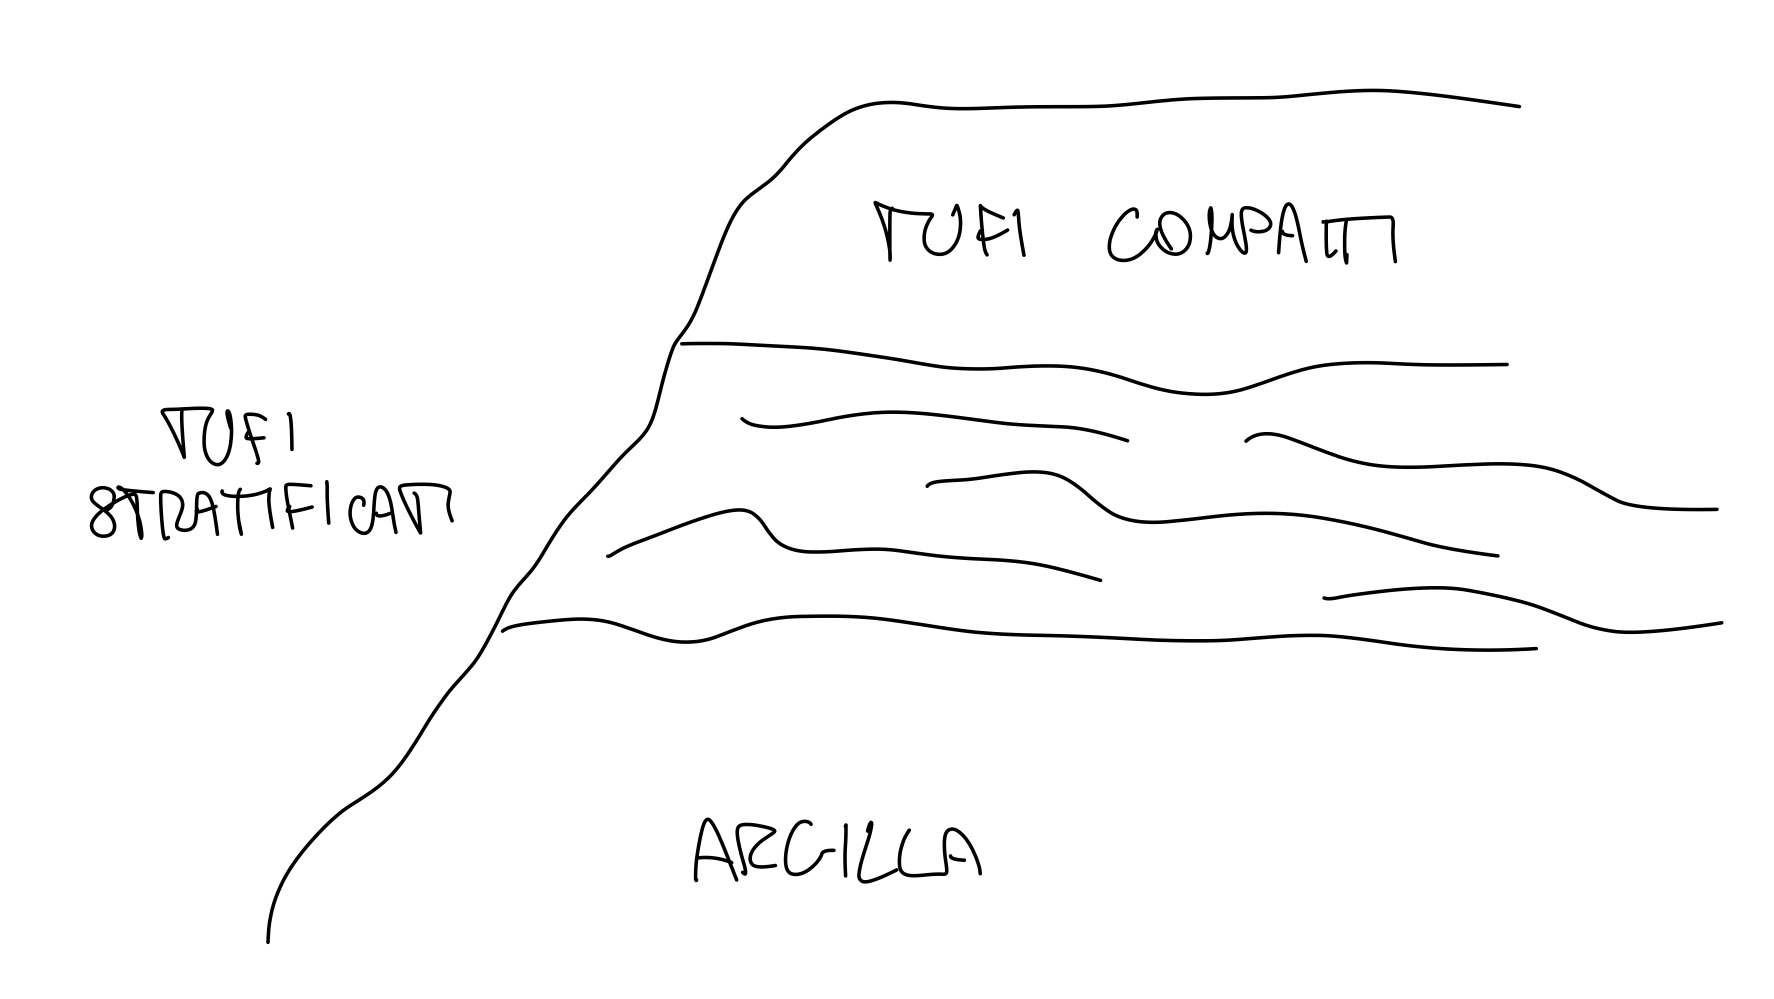 TUFI COMPATTI
TUFI
STRATIFICATI
ARGILLA